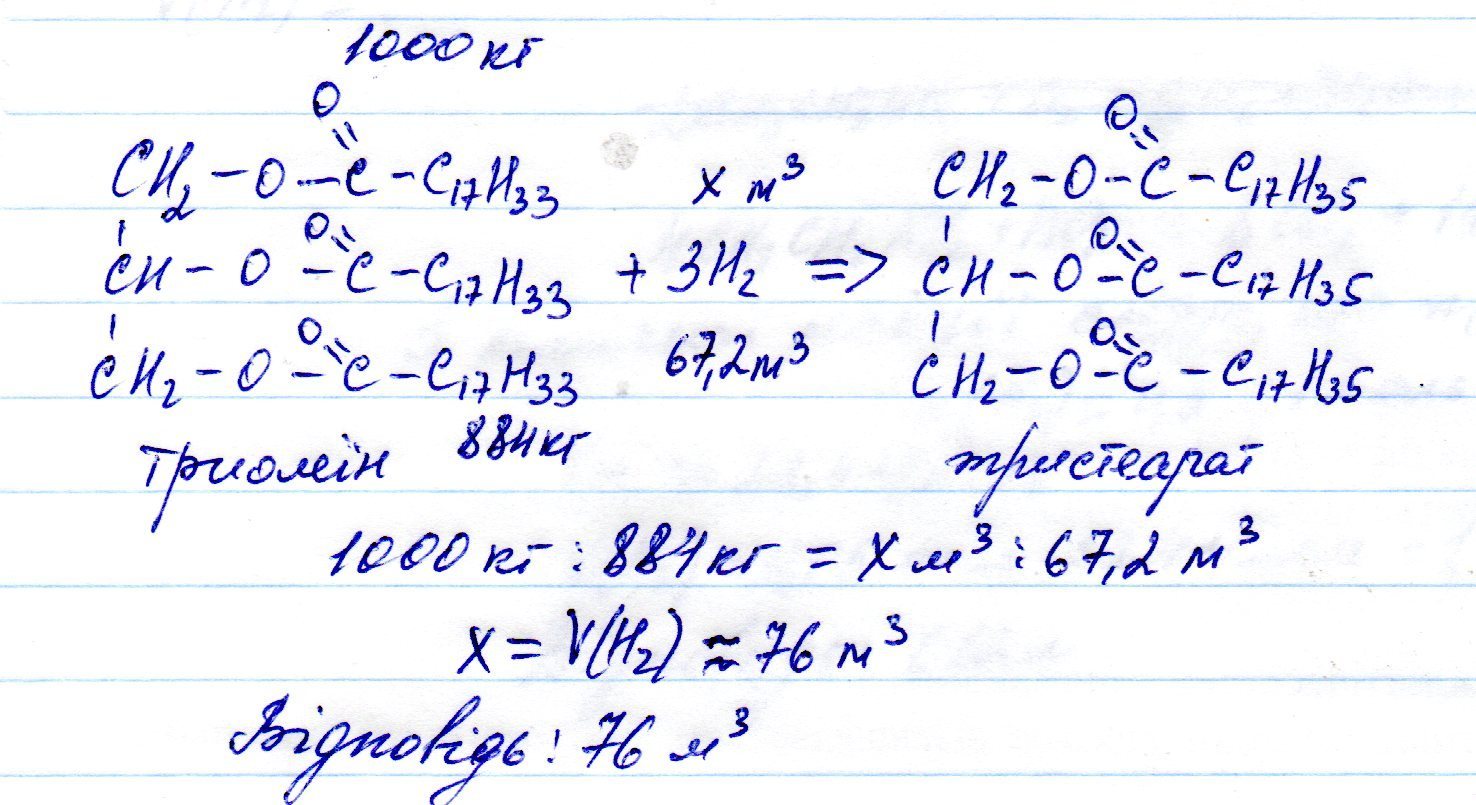 1000 кг
O O
CH2 – O – C – C17H33 x м³ CH2 – O – C – C17H35
O O
CH – O – C – C17H33 + 3H2 => CH – O – C – C17H35
O O
CH2 – O – C – C17H33 67,2 м³ CH2 – O – C – C17H35
триолеїн 884 кг тристеарат
1000 кг : 884 кг = x м³ : 67,2 м³
x = V(H2) ≈ 76 м³
Відповідь: 76 м³